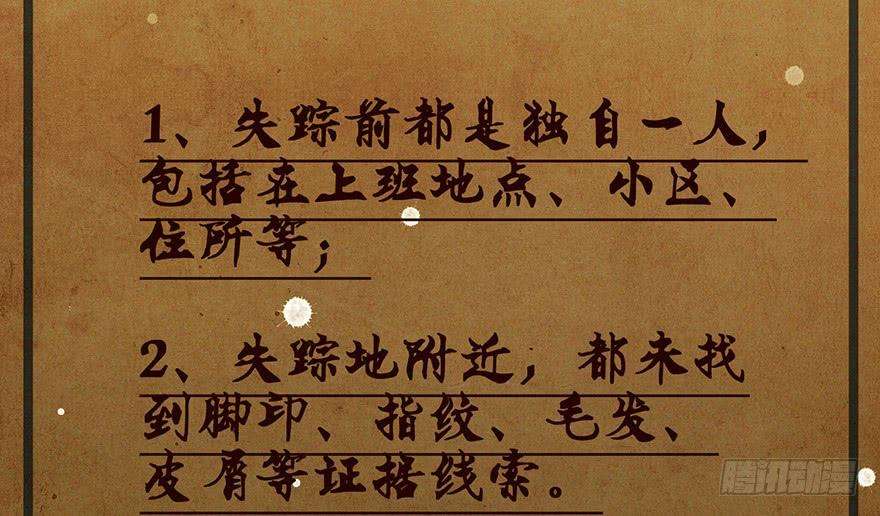 1、失踪前都是独自一人,
包括在上班地点、小区、
住所等;
2、失踪地附近,都未找
到脚印、指纹、毛发、
皮屑等证据线索。
腾讯动漫